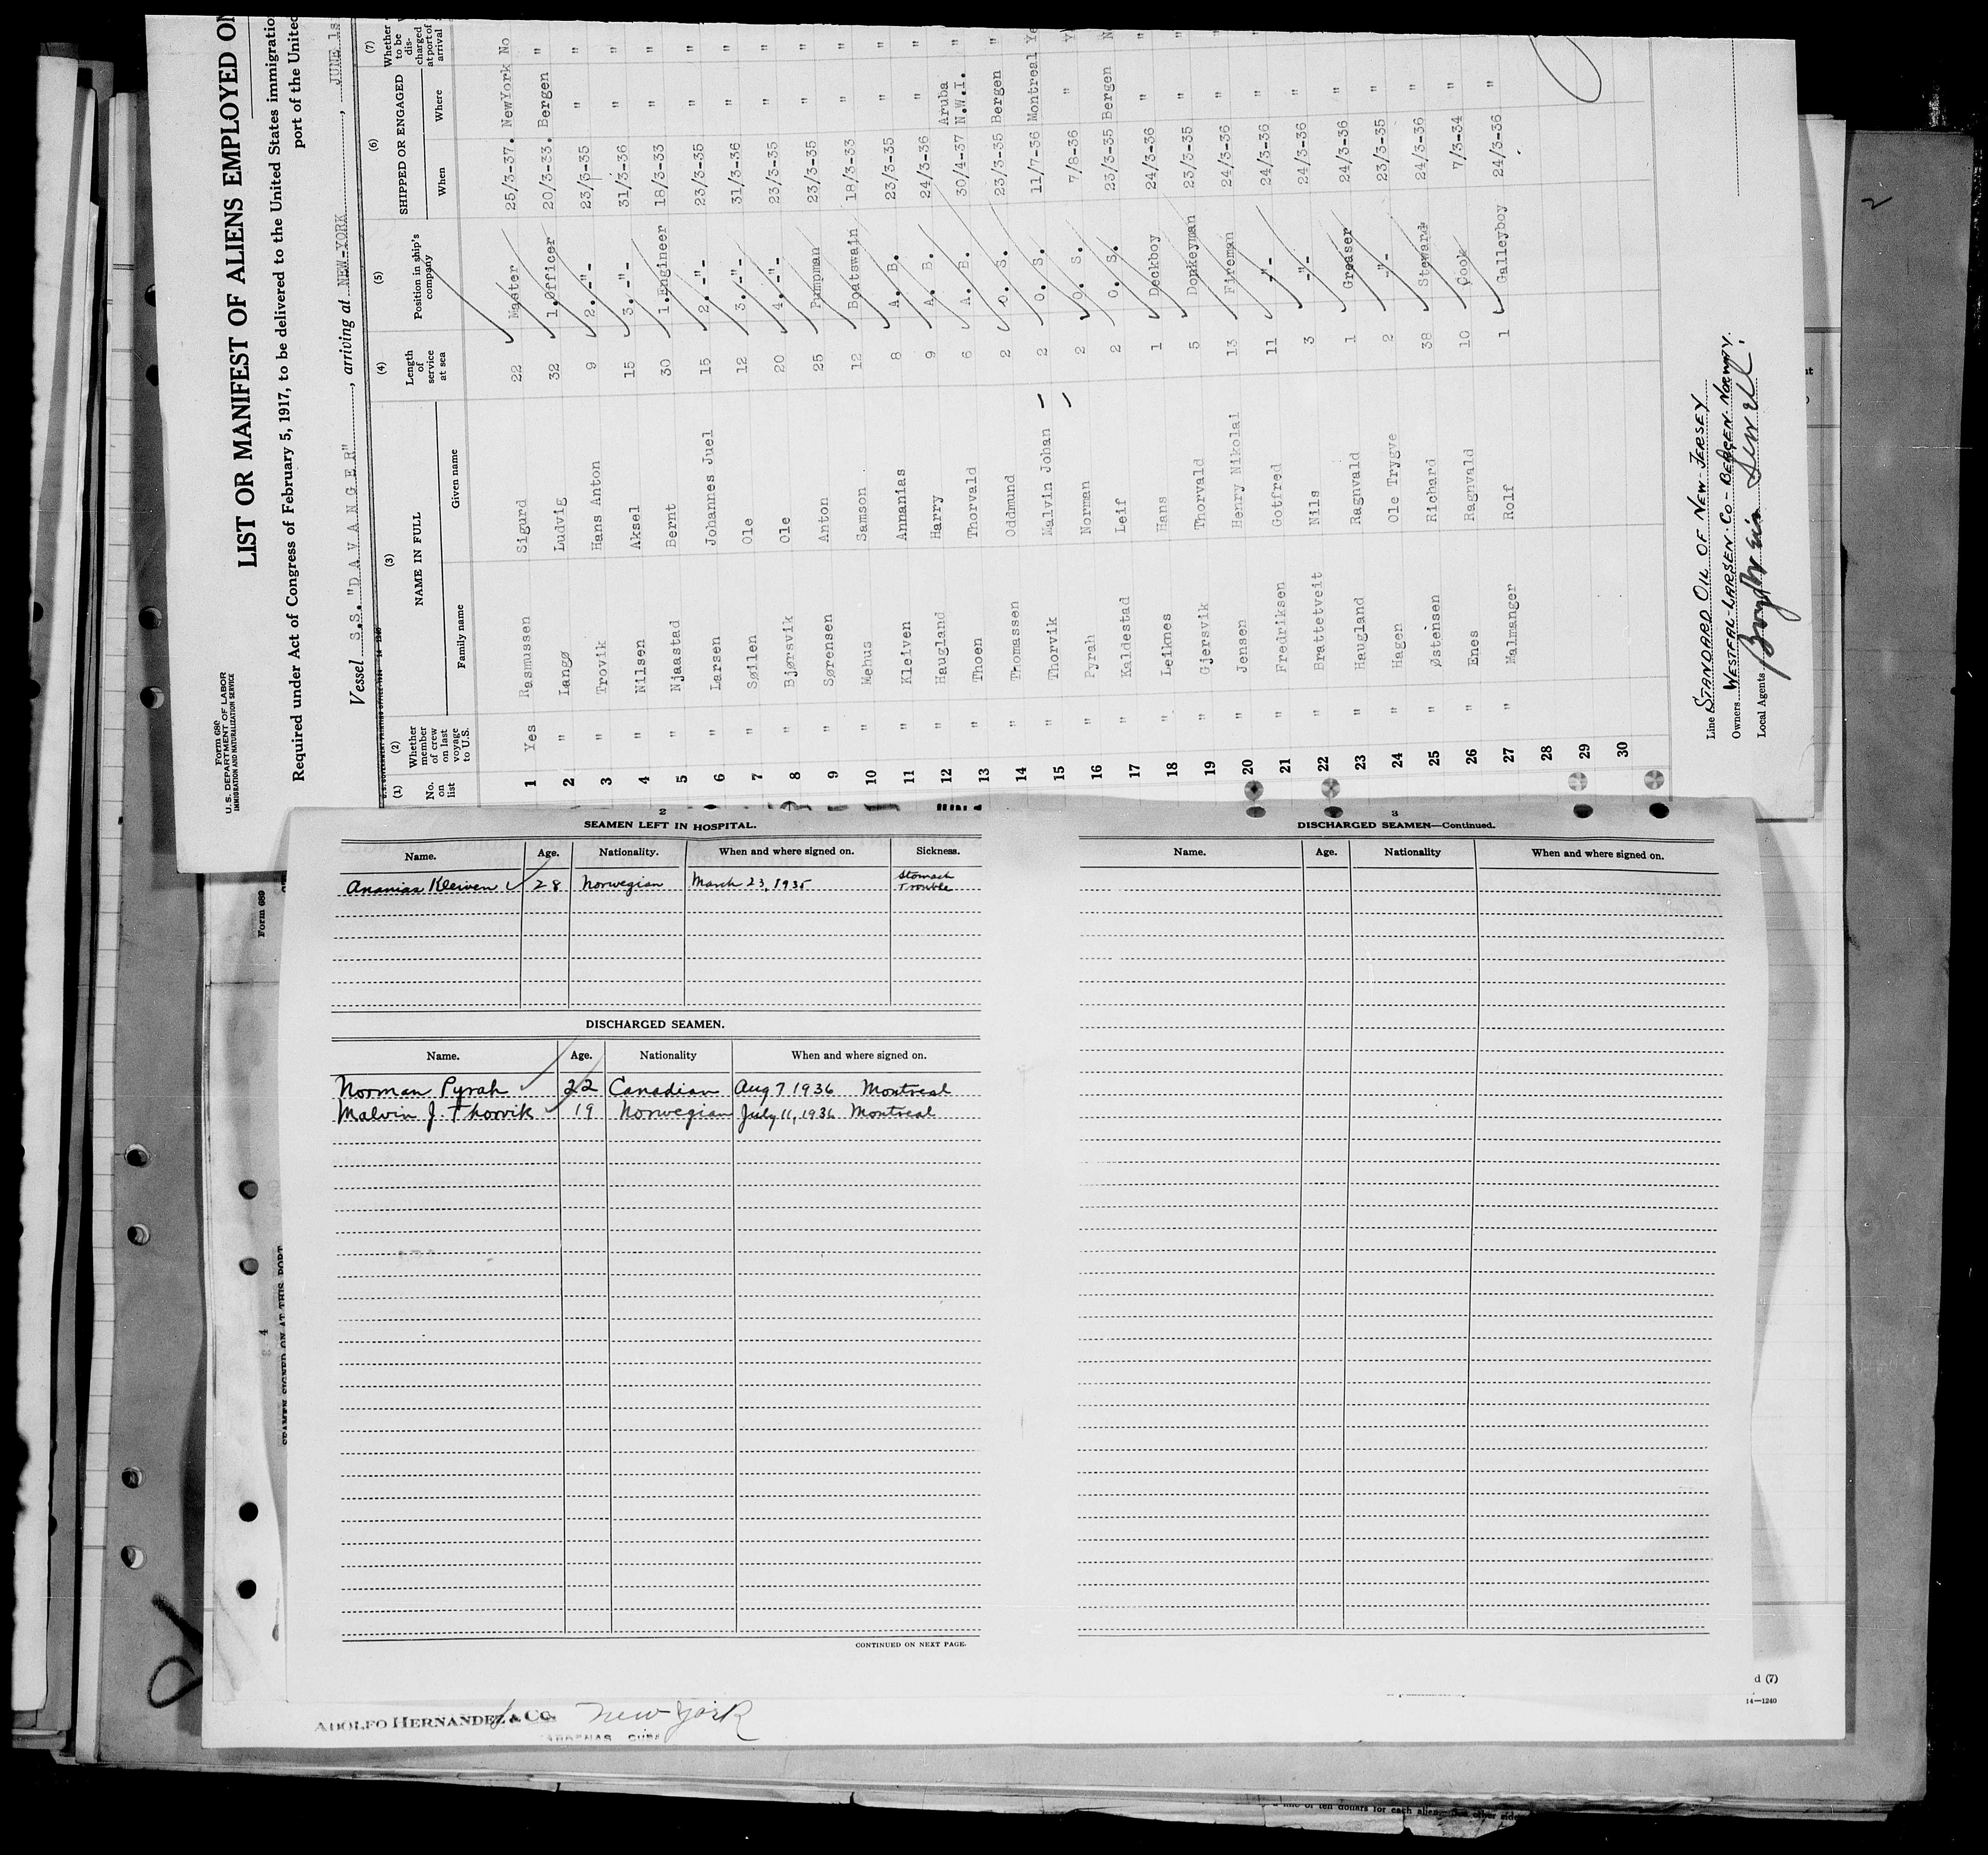 Form 680
U. S. DEPARTMENT OF LABOR
IMMIGRATION AND NATURALIZATION SERVICE
LIST OR MANIFEST OF ALIENS EMPLOYED ON
Required under Act of Congress of February 5, 1917, to be delivered to the United States immigration
port of the United
Vessel S.S. "DAVANGER", arriving at NEW-YORK, JUNE 1s
(1) (2) (3) (4) (5) (6) (7)
No. on list Whether member of crew on last voyage to U.S. NAME IN FULL Length of service at sea Position in ship's company SHIPPED OR ENGAGED Whether to be discharged at port of arrival
Family name Given name When Where
1 Yes Rasmussen Sigurd 22 Master 25/3-37. NewYork No
2 " Langø Ludvig 32 1.Officer 20/3-33. Bergen "
3 " Trovik Hans Anton 9 2.-"- 23/3-35 " "
4 " Nilsen Aksel 15 3.-"- 31/3-36 " "
5 " Njaastad Bernt 30 1.Engineer 18/3-33 " "
6 " Larsen Johannes Juel 15 2.-"- 23/3-35 " "
7 " Søilen Ole 12 3.-"- 31/3-36 " "
8 " Bjørsvik Ole 20 4.-"- 23/3-35 " "
9 " Sørensen Anton 25 Pumpman 23/3-35 " "
10 " Mehus Samson 12 Boatswain 18/3-33 " "
11 " Kleiven Annanias 8 A. B. 23/3-35 " "
12 " Haugland Harry 9 A. B. 24/3-36 " "
13 " Thoen Thorvald 6 A. B. 30/4-37 Aruba N.W.I. "
14 " Thomassen Oddmund 2 O. S. 23/3-35 Bergen "
15 " Thorvik Malvin Johan 2 O. S. 11/7-36 Montreal Ye
16 " Pyrah Norman 2 O. S. 7/8-36 " Y
17 " Kaldestad Leif 2 O. S. 23/3-35 Bergen N
18 " Leiknes Hans 1 Deckboy 24/3-36 " "
19 " Gjersvik Thorvald 5 Donkeyman 23/3-35 " "
20 " Jensen Henry Nikolai 13 Fireman 24/3-36 " "
21 " Fredriksen Gotfred 11 -"- 24/3-36 " "
22 " Brattetveit Nils 3 -"- 24/3-36 " "
23 " Haugland Ragnvald 1 Greaser 24/3-36 " "
24 " Hagen Ole Trygve 2 -"- 23/3-35 " "
25 " Østensen Richard 38 Steward 24/3-36 " "
26 " Enes Ragnvald 10 Cook 7/3-34 " "
27 " Malmanger Rolf 1 Galleyboy 24/3-36 " "
28
29
30
Line STANDARD OIL OF NEW JERSEY
Owners WESTFAL-LARSEN-CO-BERGEN NORWAY.
Local Agents
2
2
SEAMEN LEFT IN HOSPITAL.
Name. Age. Nationality. When and where signed on. Sickness.
Ananias Kleiven 28 Norwegian March 23, 1935 Stomach Trouble
DISCHARGED SEAMEN.
Name. Age. Nationality When and where signed on.
Norman Pyrah 22 Canadian Aug 7 1936 Montreal
Malvin J. Thorvik 19 Norwegian July 11, 1936 Montreal
CONTINUED ON NEXT PAGE.
3
DISCHARGED SEAMEN—Continued.
Name. Age. Nationality When and where signed on.
Form 689
4
SEAMEN SIGNED ON AT THIS PORT
d (7)
14—1240
ADOLFO HERNANDEZ & CO. New York